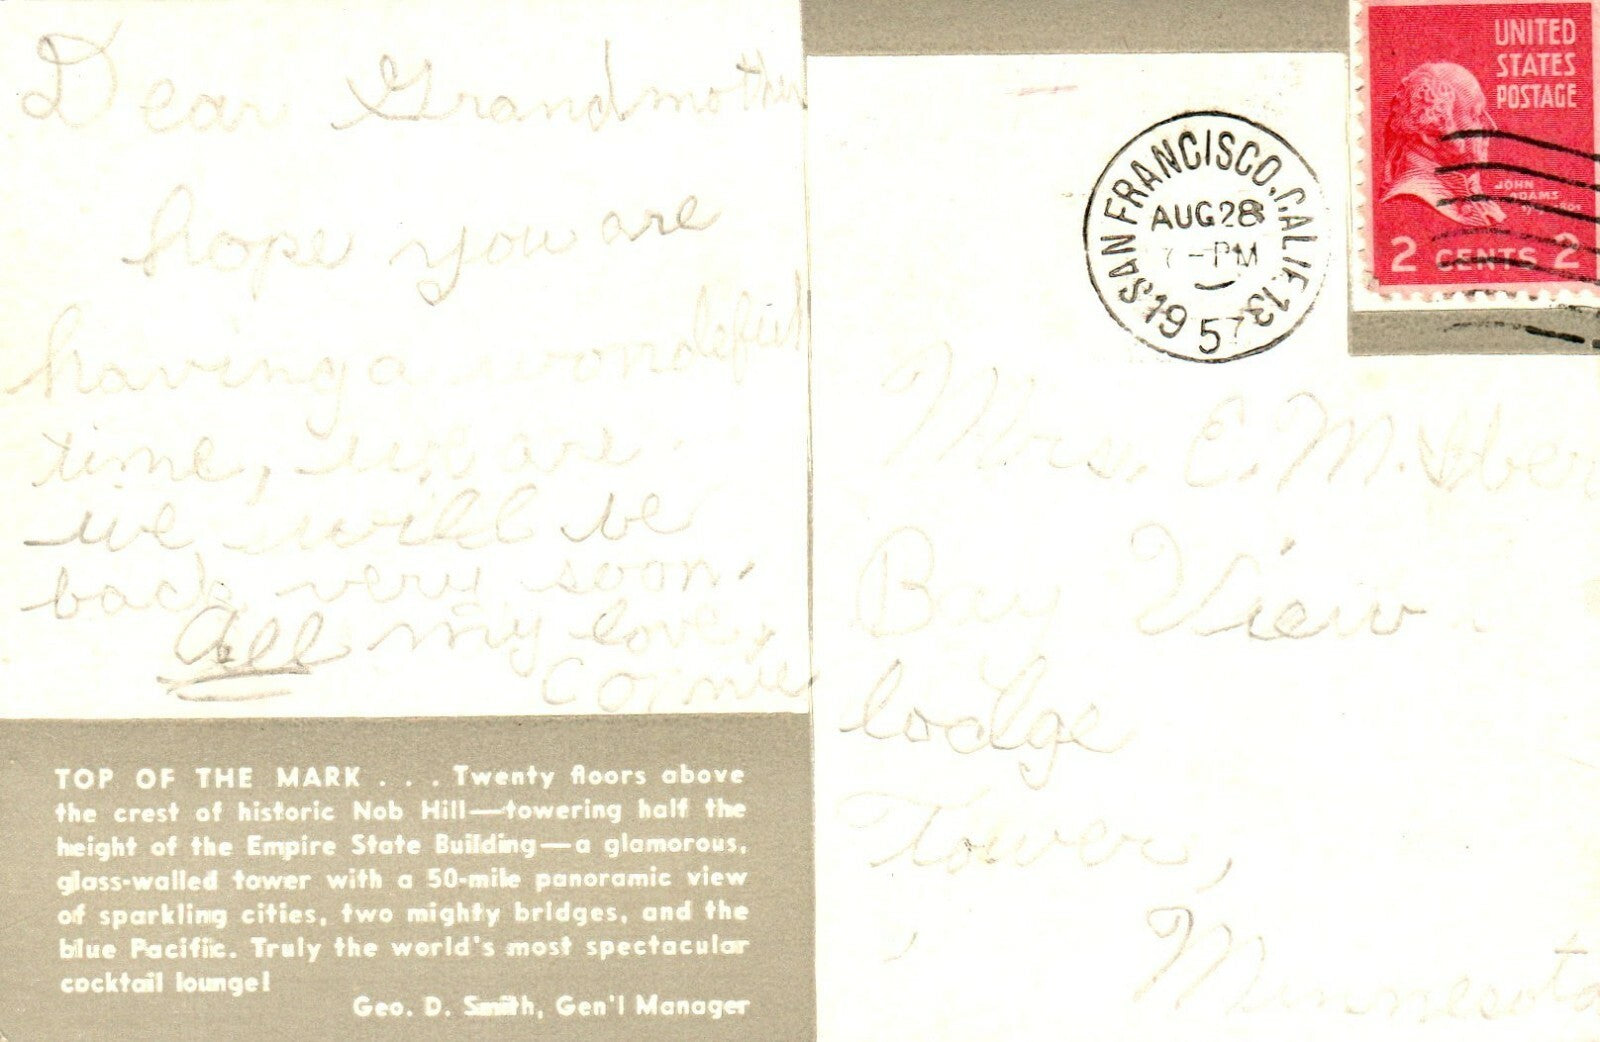 Dear Grandmother
hope you are
having a wondefull
time, we are
we will be
back very soon.
All my love,
Connie
TOP OF THE MARK . . . Twenty floors above
the crest of historic Nob Hill—towering half the
height of the Empire State Building—a glamorous,
glass-walled tower with a 50-mile panoramic view
of sparkling cities, two mighty bridges, and the
blue Pacific. Truly the world's most spectacular
cocktail lounge!
Geo. D. Smith, Gen'l Manager
UNITED
STATES
POSTAGE
JOHN
ADAMS
2 CENTS 2
SAN FRANCISCO, CALIF. 13
AUG 28
7-PM
1957
Mrs. E. M.
Bay View
lodge
Tower,
Minnesota